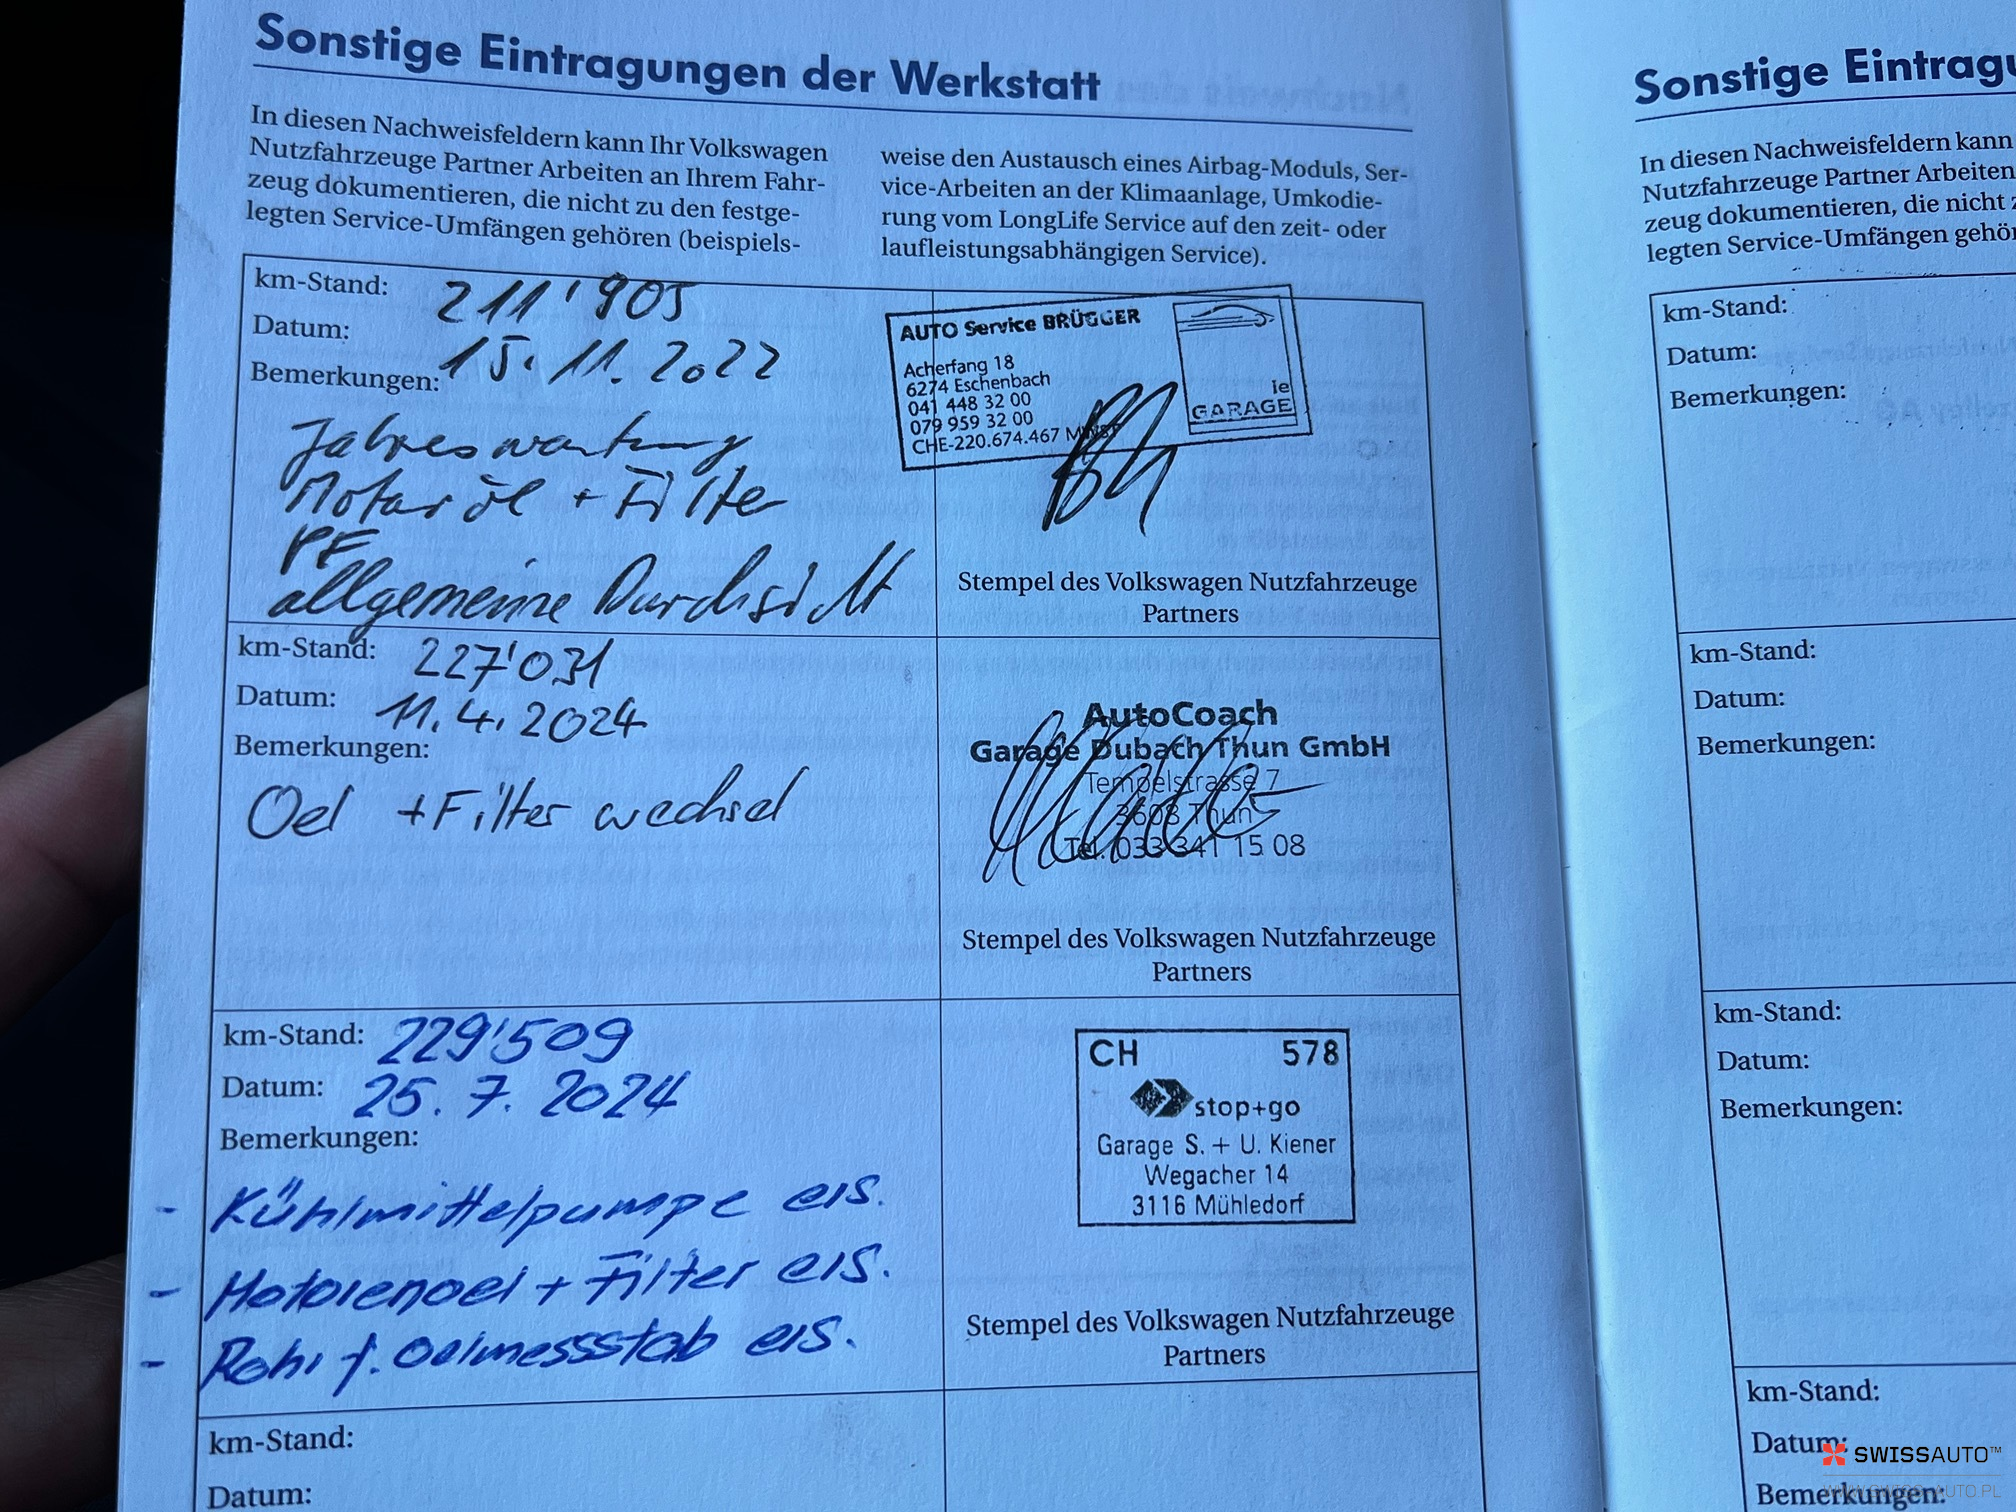 Sonstige Eintragungen der Werkstatt
In diesen Nachweisfeldern kann Ihr Volkswagen
Nutzfahrzeuge Partner Arbeiten an Ihrem Fahr-
zeug dokumentieren, die nicht zu den festge-
legten Service-Umfängen gehören (beispiels-
weise den Austausch eines Airbag-Moduls, Ser-
vice-Arbeiten an der Klimaanlage, Umkodie-
rung vom LongLife Service auf den zeit- oder
laufleistungsabhängigen Service).
km-Stand: 211'905
Datum: 15.11.2022
Bemerkungen:
Jahreswartung
Motoröl + Filter
PF
allgemeine Durchsicht
AUTO Service BRÜGGER
Acherfang 18
6274 Eschenbach
041 448 32 00
079 959 32 00
CHE-220.674.467 MWST
ie
GARAGE
Stempel des Volkswagen Nutzfahrzeuge
Partners
km-Stand: 227'031
Datum: 11.4.2024
Bemerkungen:
Oel + Filter wechsel
AutoCoach
Garage Dubach Thun GmbH
Tempelstrasse 7
3608 Thun
Tel. 033 341 15 08
Stempel des Volkswagen Nutzfahrzeuge
Partners
km-Stand: 229'509
Datum: 25.7.2024
Bemerkungen:
- Kühlmittelpumpe ers.
- Motorenoel + Filter ers.
- Rohr f. Oelmessstab ers.
CH 578
stop+go
Garage S. + U. Kiener
Wegacher 14
3116 Mühledorf
Stempel des Volkswagen Nutzfahrzeuge
Partners
km-Stand:
Datum:
Sonstige Eintragu
In diesen Nachweisfeldern kann
Nutzfahrzeuge Partner Arbeiten
zeug dokumentieren, die nicht z
legten Service-Umfängen gehör
km-Stand:
Datum:
Bemerkungen:
km-Stand:
Datum:
Bemerkungen:
km-Stand:
Datum:
Bemerkungen:
km-Stand:
Datum:
Bemerkungen:
SWISSAUTO™
WWW.SWISS-AUTO.PL